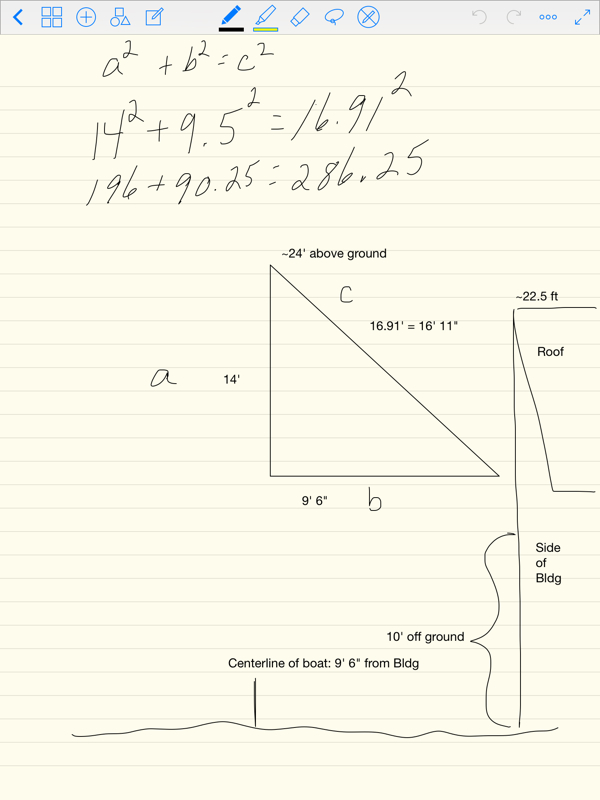 a² + b² = c²
14² + 9.5² = 16.91²
196 + 90.25 = 286.25
~24' above ground
c
~22.5 ft
16.91' = 16' 11"
Roof
a
14'
9' 6"
b
Side
of
Bldg
10' off ground
Centerline of boat: 9' 6" from Bldg